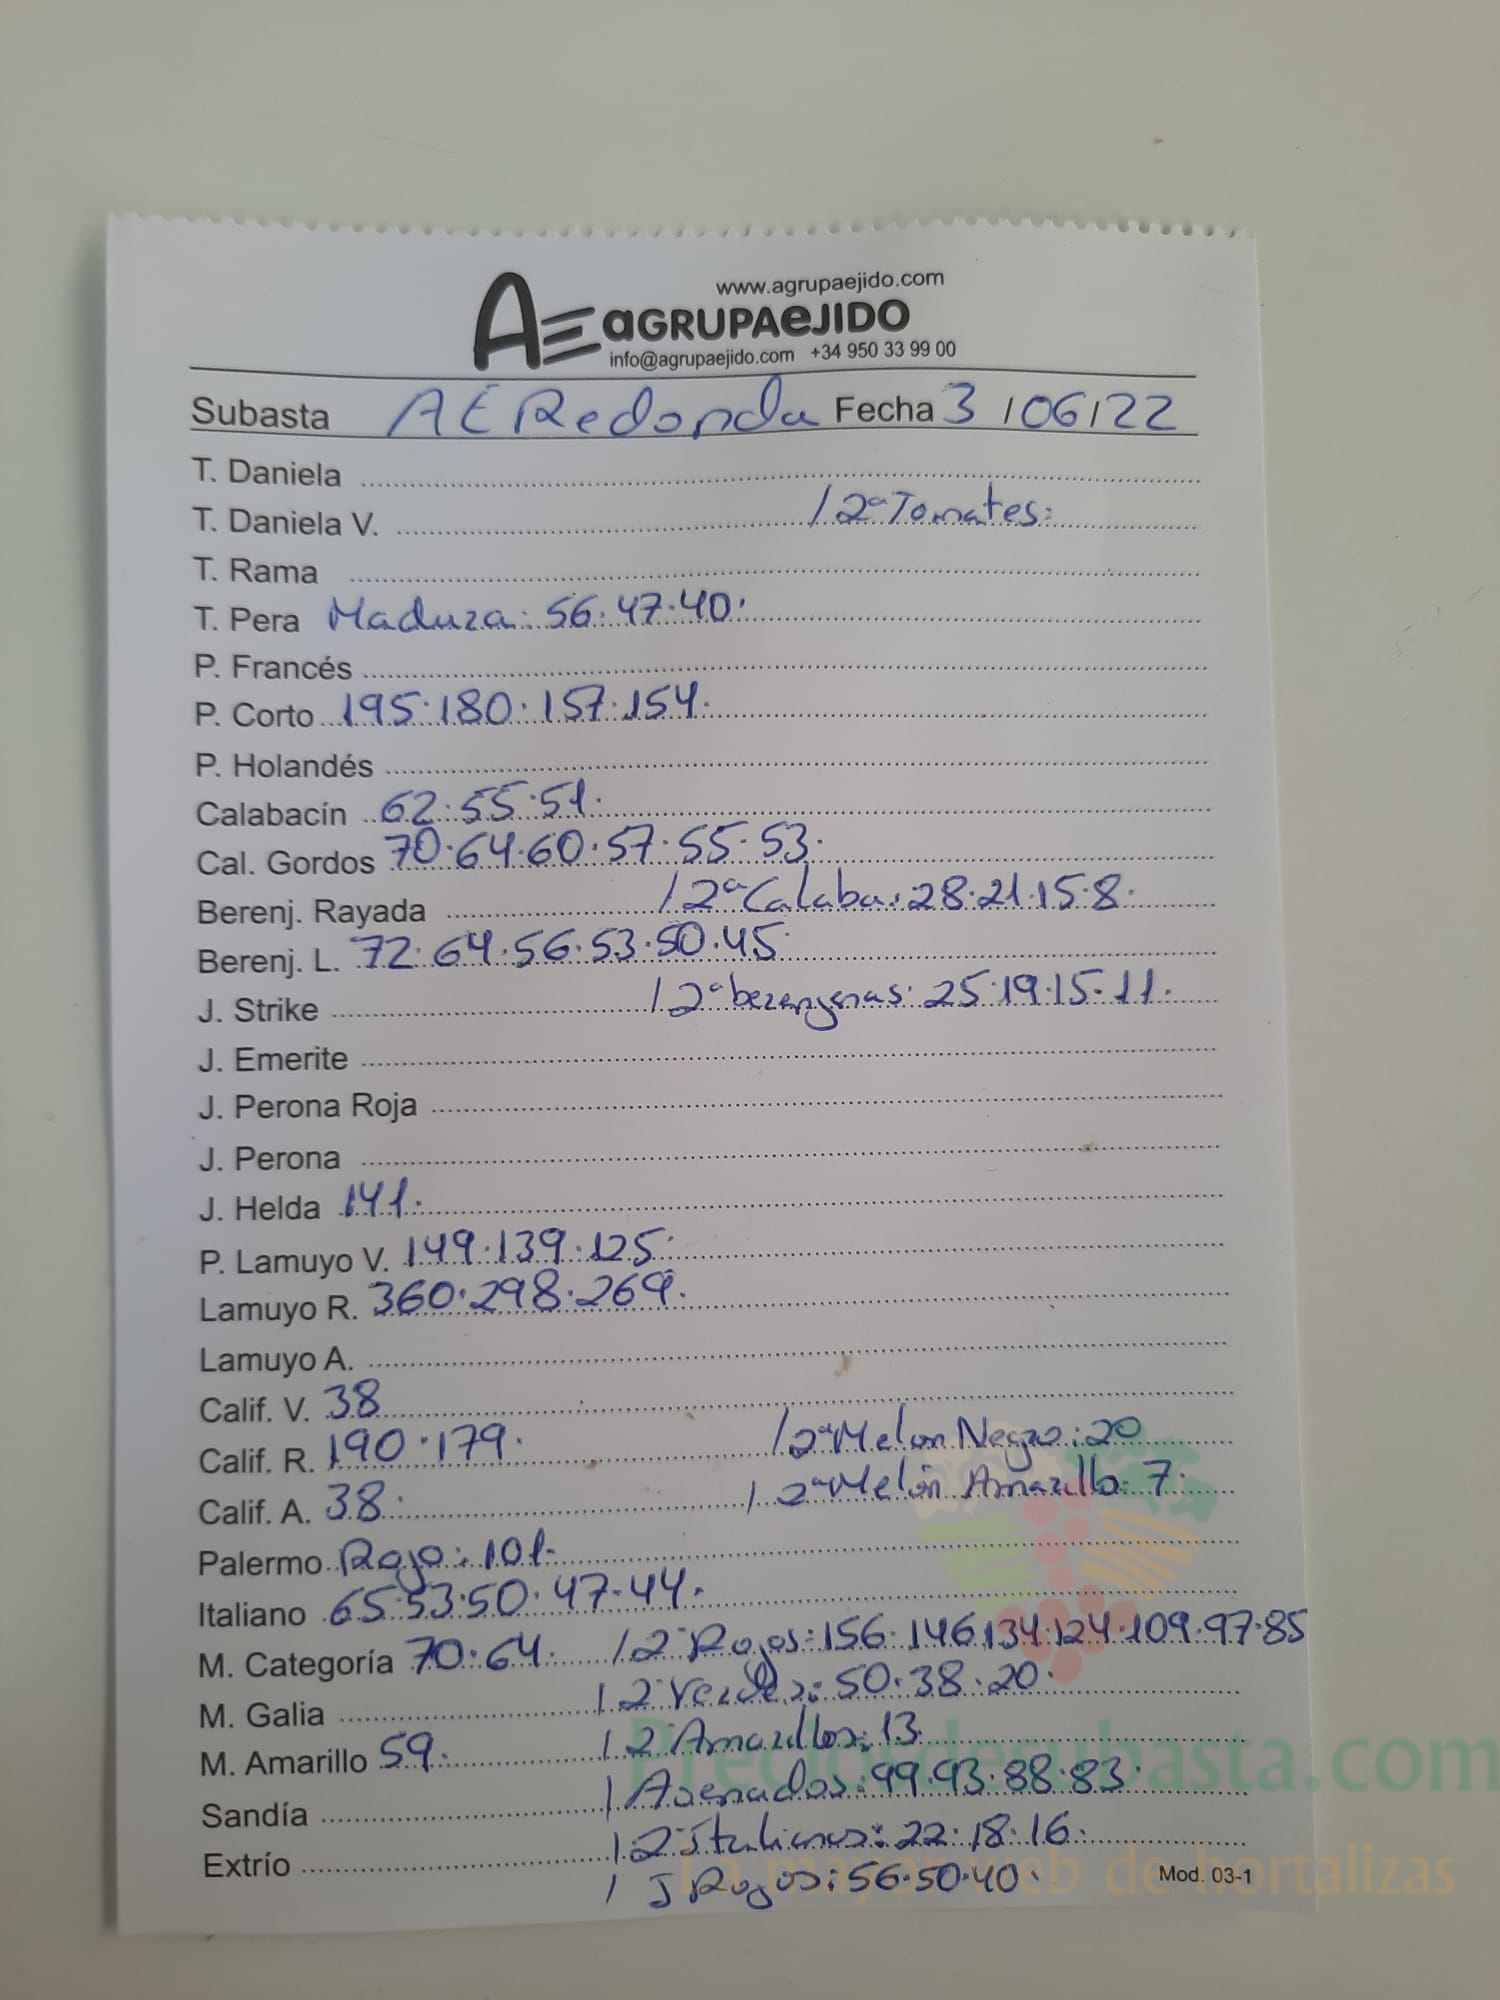 www.agrupaejido.com
AE aGRUPAeJIDO
info@agrupaejido.com +34 950 33 99 00
Subasta AE Redonda Fecha 3 / 06 / 22
T. Daniela
T. Daniela V. / 2ª Tomates:
T. Rama
T. Pera Madura: 56. 47. 40.
P. Francés
P. Corto 195. 180. 157. 154.
P. Holandés
Calabacín 62. 55. 51.
Cal. Gordos 70. 64. 60. 57. 55. 53.
Berenj. Rayada / 2ª Calaba: 28. 21. 15. 8.
Berenj. L. 72. 64. 56. 53. 50. 45.
J. Strike / 2ª berengenas: 25. 19. 15. 11.
J. Emerite
J. Perona Roja
J. Perona
J. Helda 141.
P. Lamuyo V. 149. 139. 125.
Lamuyo R. 360. 298. 269.
Lamuyo A.
Calif. V. 38
Calif. R. 190. 179. / 2ª Melon Negro: 20
Calif. A. 38. / 2ª Melón Amarillo: 7.
Palermo Rojo: 101.
Italiano 65. 53. 50. 47. 44.
M. Categoría 70. 64. / 2ª Rojos: 156. 146. 134. 124. 109. 97. 85
M. Galia / 2ª Verdes: 50. 38. 20.
M. Amarillo 59. / 2ª Amarillos: 13.
Sandía / Asenados: 99. 93. 88. 83.
Extrío / 2ª Italianos: 22. 18. 16.
/ J Rojos: 56. 50. 40.
Mod. 03-1
Preciosdesubasta.com
la mayor web de hortalizas